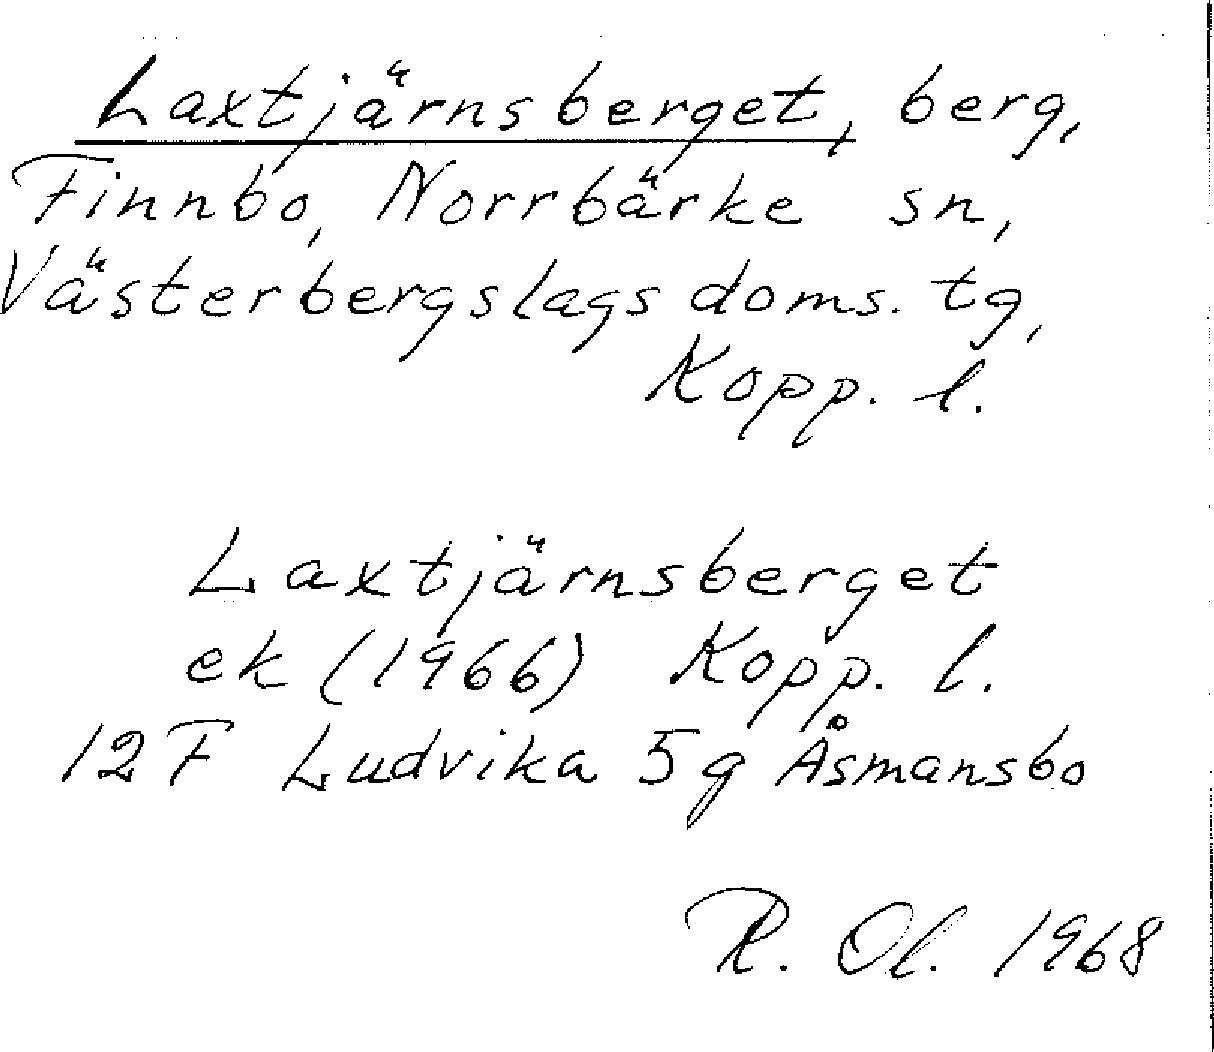 Laxtjärnsberget, berg,
Finnbo, Norrbärke sn,
Västerbergslags doms. tg,
Kopp. l.
Laxtjärnsberget
ek (1966) Kopp. l.
12 F Ludvika 5 g Åsmansbo
R. Ol. 1968